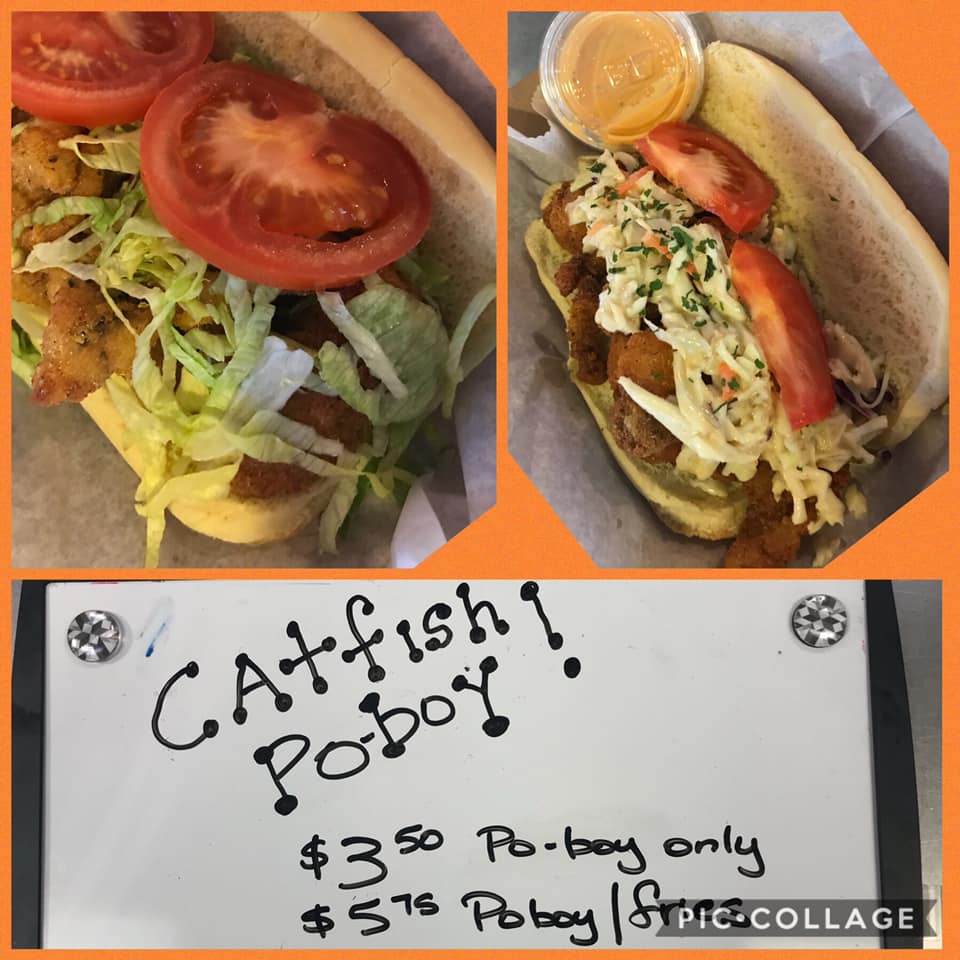 CAtfish!
Po-boy
$3.50 Po-boy only
$5.75 Poboy/fries
PIC•COLLAGE